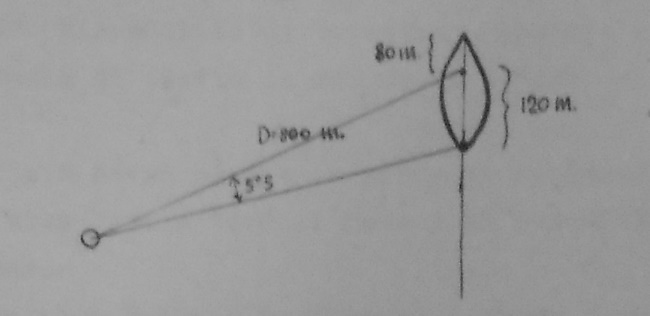 80 m
120 m.
D=800 m.
5°5